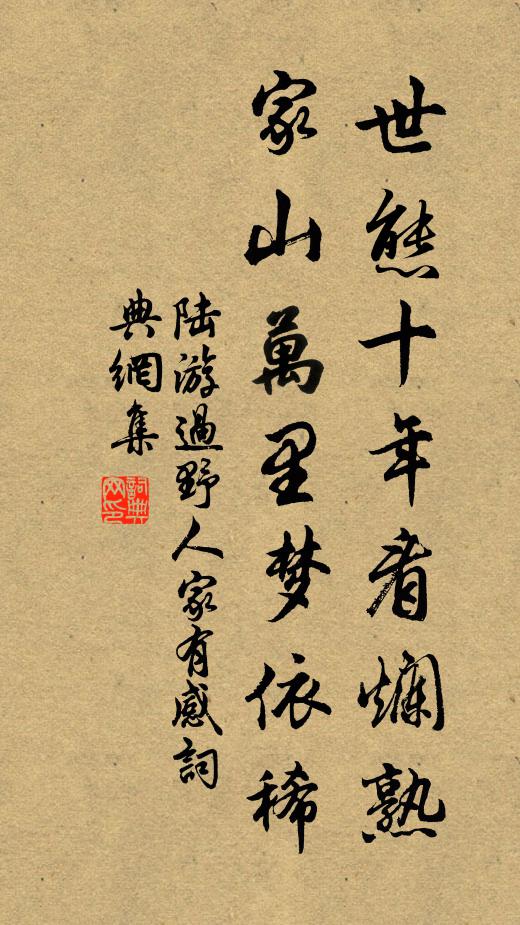 世態十年看爛熟
家山萬里梦依稀
陆游過野人家有感詞
典網集
詞典网印